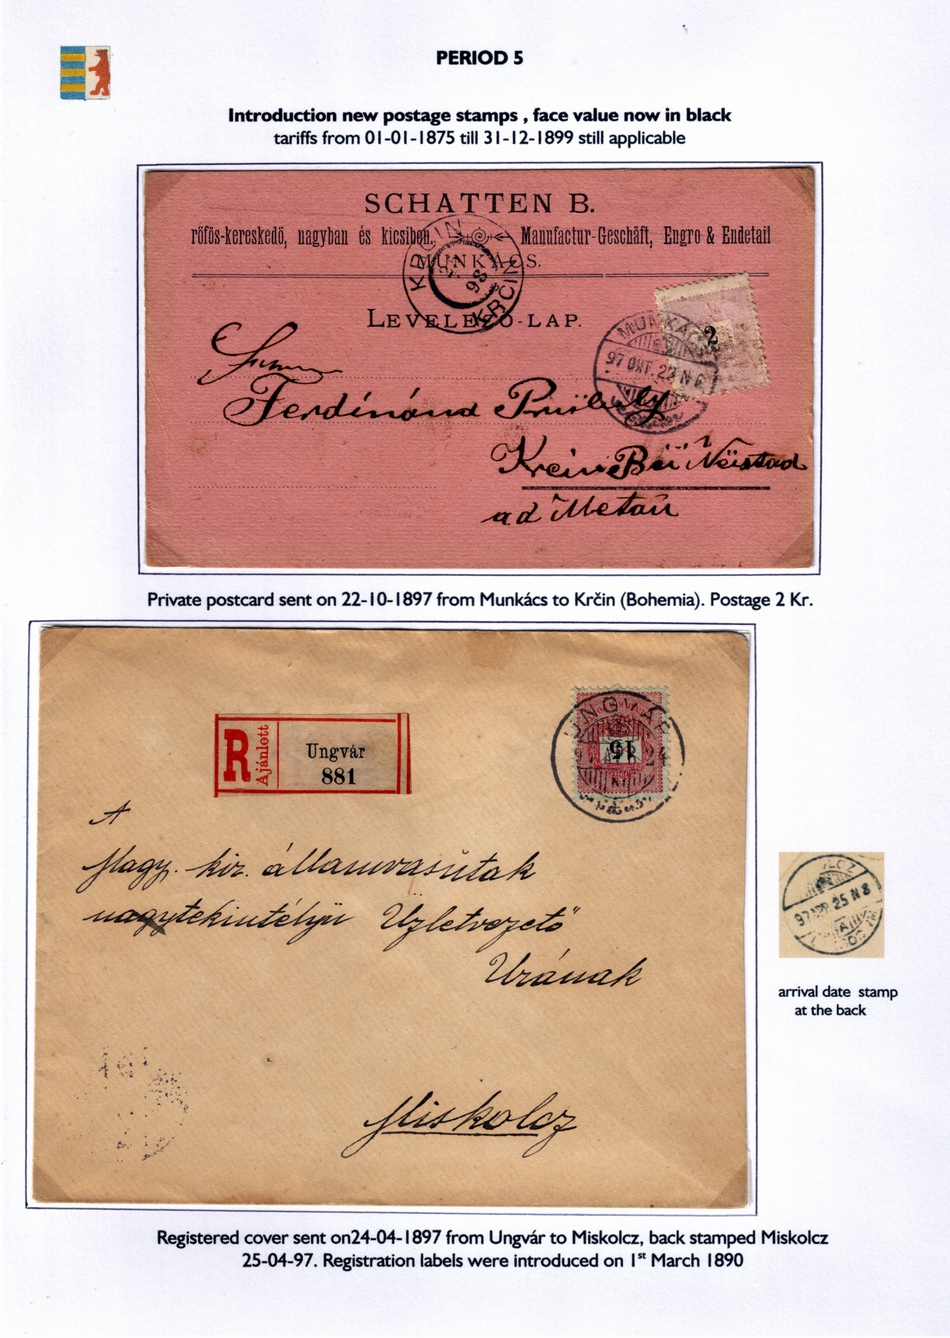 PERIOD 5
Introduction new postage stamps , face value now in black
tariffs from 01-01-1875 till 31-12-1899 still applicable
SCHATTEN B.
rőfös-kereskedő, nagyban és kicsiben.
Manufactur-Geschäft, Engro & Endetail
MUNKÁCS.
LEVELEZŐ-LAP.
KRČIN
98
KRČIN
2
MUNKÁCS
97 OKT. 22 N 6
Ferdinánd
Krcin Bei Neistad
ad Metau
Private postcard sent on 22-10-1897 from Munkács to Krčin (Bohemia). Postage 2 Kr.
R
Ajánlott
Ungvár
881
UNGVÁR
15
24
A
Magy. kir. államvasútak
nagytekintélyü Üzletvezető
Urának
Miskolcz
97 APR. 25 N 8
arrival date stamp
at the back
Registered cover sent on24-04-1897 from Ungvár to Miskolcz, back stamped Miskolcz
25-04-97. Registration labels were introduced on 1st March 1890